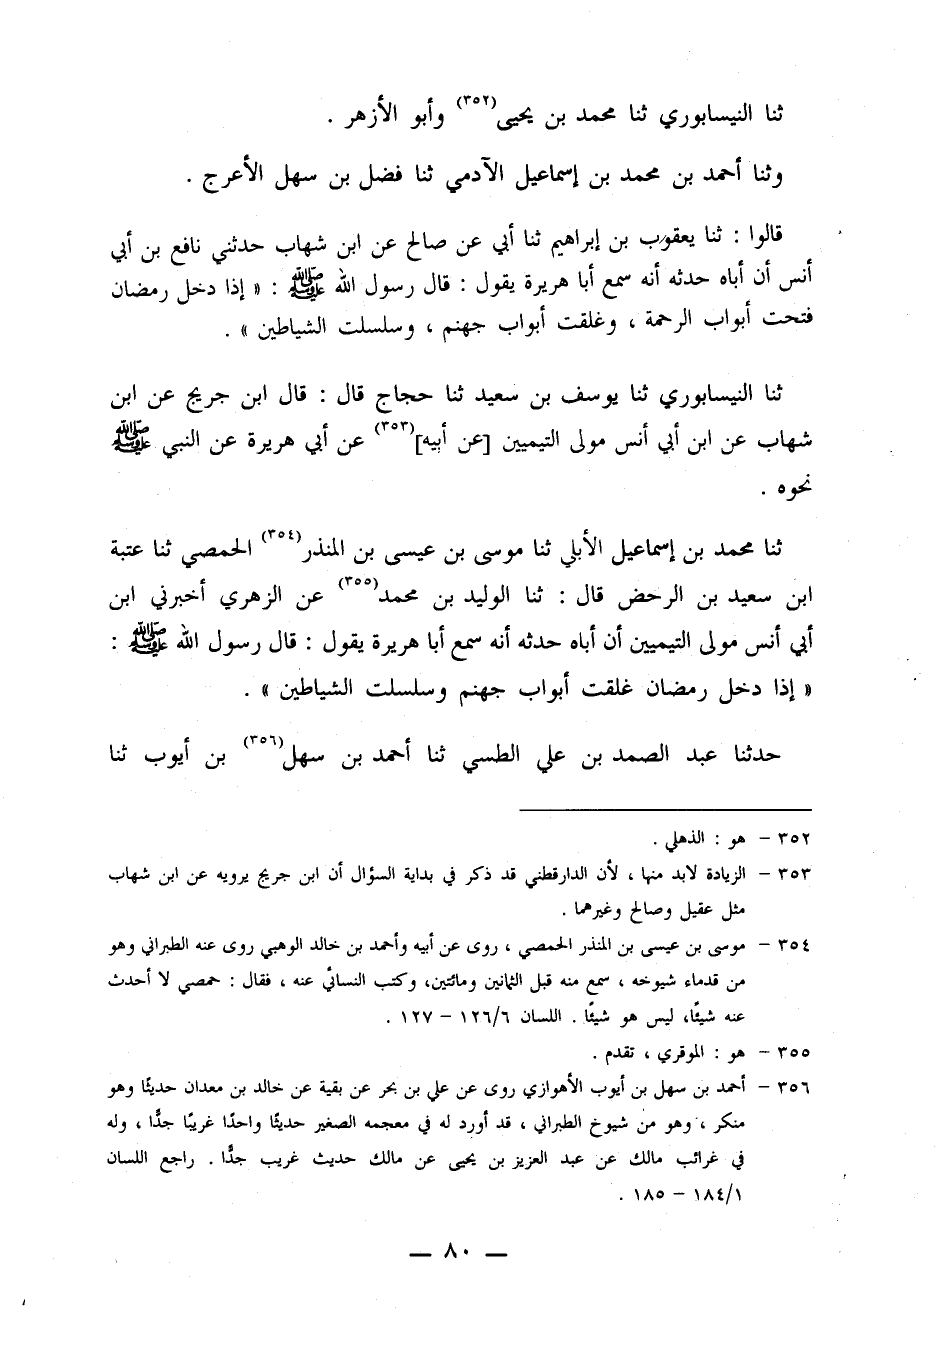 ثنا النيسابوري ثنا محمد بن يحيى(٣٥٢) وأبو الأزهر .
وثنا أحمد بن محمد بن إسماعيل الآدمي ثنا فضل بن سهل الأعرج .
قالوا : ثنا يعقوب بن إبراهيم ثنا أبي عن صالح عن ابن شهاب حدثني نافع بن أبي
أنس أن أباه حدثه أنه سمع أبا هريرة يقول : قال رسول الله ﷺ : « إذا دخل رمضان
فتحت أبواب الرحمة ، وغلقت أبواب جهنم ، وسلسلت الشياطين » .
ثنا النيسابوري ثنا يوسف بن سعيد ثنا حجاج قال : قال ابن جريج عن ابن
شهاب عن ابن أبي أنس مولى التيميين [عن أبيه](٣٥٣) عن أبي هريرة عن النبي ﷺ
نحوه .
ثنا محمد بن إسماعيل الأبلي ثنا موسى بن عيسى بن المنذر(٣٥٤) الحمصي ثنا عتبة
ابن سعيد بن الرحض قال : ثنا الوليد بن محمد(٣٥٥) عن الزهري أخبرني ابن
أبي أنس مولى التيميين أن أباه حدثه أنه سمع أبا هريرة يقول : قال رسول الله ﷺ :
« إذا دخل رمضان غلقت أبواب جهنم وسلسلت الشياطين » .
حدثنا عبد الصمد بن علي الطسي ثنا أحمد بن سهل(٣٥٦) بن أيوب ثنا
٣٥٢ – هو : الذهلي .
٣٥٣ – الزيادة لابد منها ، لأن الدارقطني قد ذكر في بداية السؤال أن ابن جريج يرويه عن ابن شهاب
مثل عقيل وصالح وغيرهما .
٣٥٤ – موسى بن عيسى بن المنذر الحمصي ، روى عن أبيه وأحمد بن خالد الوهبي روى عنه الطبراني وهو
من قدماء شيوخه ، سمع منه قبل الثمانين ومائتين، وكتب النسائي عنه ، فقال : حمصي لا أحدث
عنه شيئًا، ليس هو شيئًا . اللسان ١٢٦/٦ – ١٢٧ .
٣٥٥ – هو : الموقري ، تقدم .
٣٥٦ – أحمد بن سهل بن أيوب الأهوازي روى عن علي بن بحر عن بقية عن خالد بن معدان حديثًا وهو
منكر ، وهو من شيوخ الطبراني ، قد أورد له في معجمه الصغير حديثًا واحدًا غريبًا جدًّا ، وله
في غرائب مالك عن عبد العزيز بن يحيى عن مالك حديث غريب جدًّا . راجع اللسان
١٨٤/١ – ١٨٥ .
— ٨٠ —